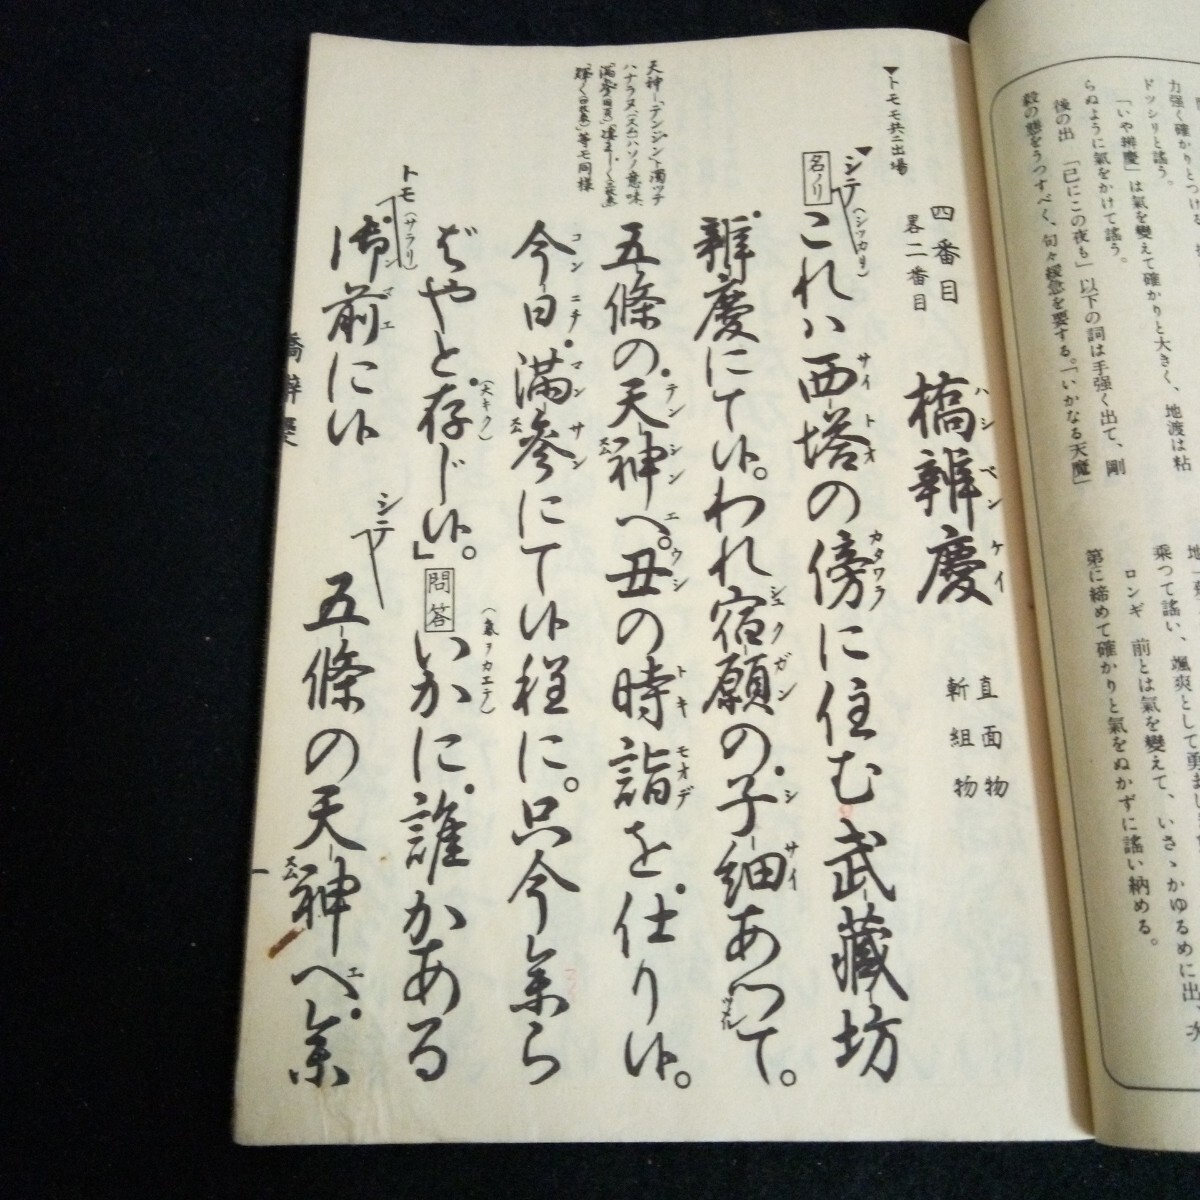 力強く確かりとつける
ドッシリと謠う。
「いや辨慶」は氣を變えて確かりと大きく、地渡は粘
らぬように氣をかけて謠う。
後の出　「已にこの夜も」以下の詞は手强く出て、剛
毅の態をうつすべく、句々緩怠を要する。「いかなる天魔」
乘つて謠い、颯爽として勇ま
ロンギ　前とは氣を變えて、いさゝかゆるめに出、次
第に締めて確かりと氣をぬかずに謠い納める。
四番目
畧二番目
橋辨慶
ハシベンケイ
直面物
斬組物
▼トモモ共ニ出場
▼シテ(シッカリ)
名ノリ
これハ西塔の傍に住む武藏坊
サイトオ カタワラ
辨慶にてゐ。われ宿願の子細あつて。
シュクガン シサイ
五條の天神へ。丑の時詣を仕りゐ。
テンシンエ ウシ トキ モオデ
今日滿參にてゐ程に。只今參ら
コンニチ マンサン
ばやと存じゐ。」問答 いかに誰かある
(大キク) (氣ヲカエテ)
トモ(サラリ)
御前にゐ
ンマエ
シテ
五條の天神へ參
天神―「テンジン」ト濁ツテ
ハナラヌ(スム)ハソノ意味、
橋辨慶
一